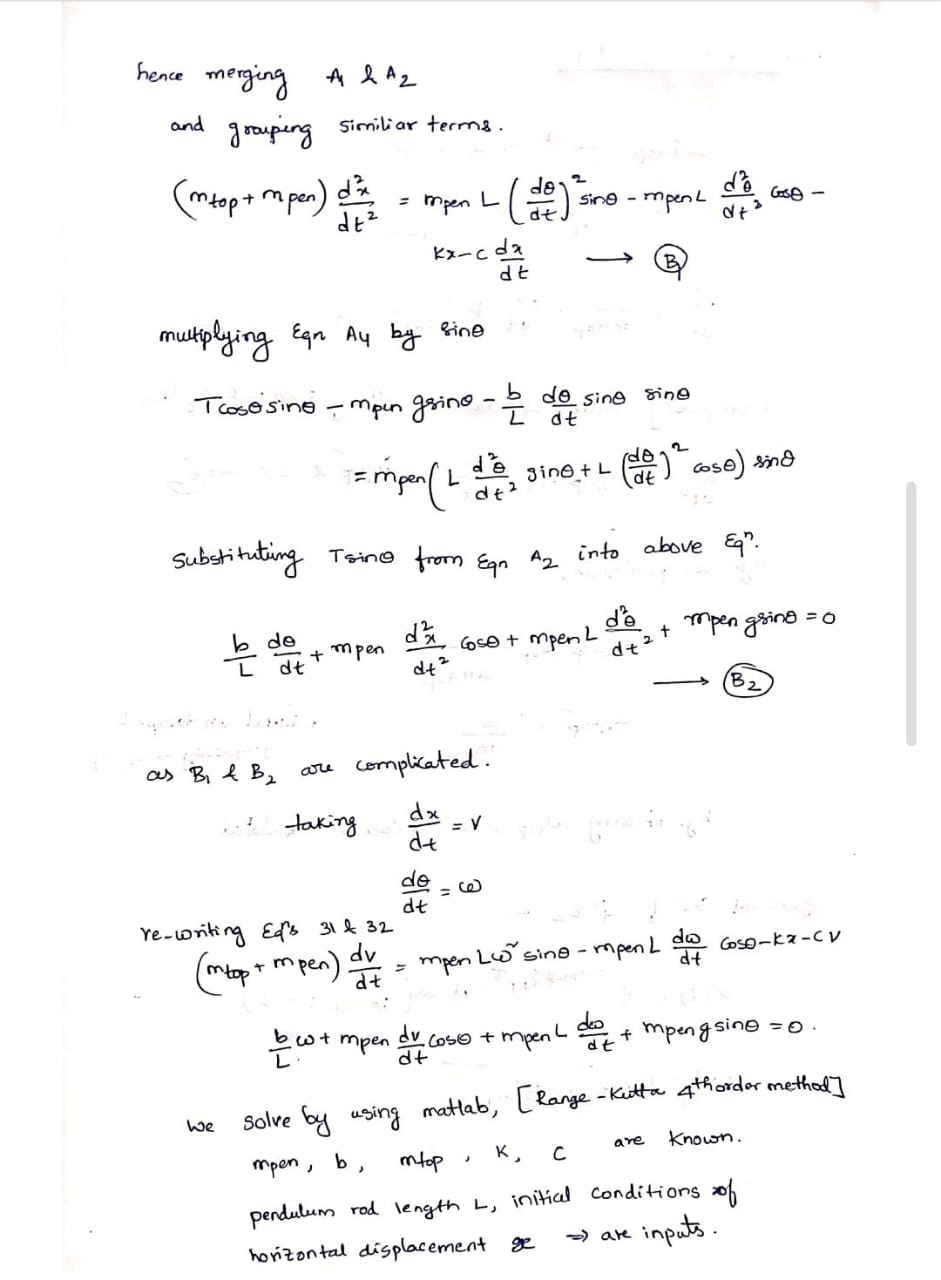 hence merging A & A2
and grouping similiar terms.
(mtop + mpen) d²x/dt² = mpen L (dθ/dt)² sinθ - mpen L d²θ/dt² cosθ -
kx - c dx/dt → (B1)
multiplying Eqn A4 by sinθ
Tcosθ sinθ - mpen gsinθ - b/L dθ/dt sinθ sinθ
= mpen (L d²θ/dt² sinθ + L (dθ/dt)² cosθ) sinθ
substituting Tsinθ from Eqn A2 into above Eqn.
b/L dθ/dt + mpen d²x/dt² cosθ + mpen L d²θ/dt² + mpen gsinθ = 0
→ (B2)
as B1 & B2 are complicated.
∴ taking dx/dt = v
dθ/dt = ω
re-writing Eq's 31 & 32
(mtop + mpen) dv/dt = mpen Lω² sinθ - mpen L dω/dt cosθ - kx - cv
b/L ω + mpen dv/dt cosθ + mpen L dω/dt + mpen g sinθ = 0.
we solve by using matlab, [Range - Kutta 4th order method]
mpen, b, mtop, K, C are known.
pendulum rod length L, initial conditions of
horizontal displacement x ⇒ are inputs.